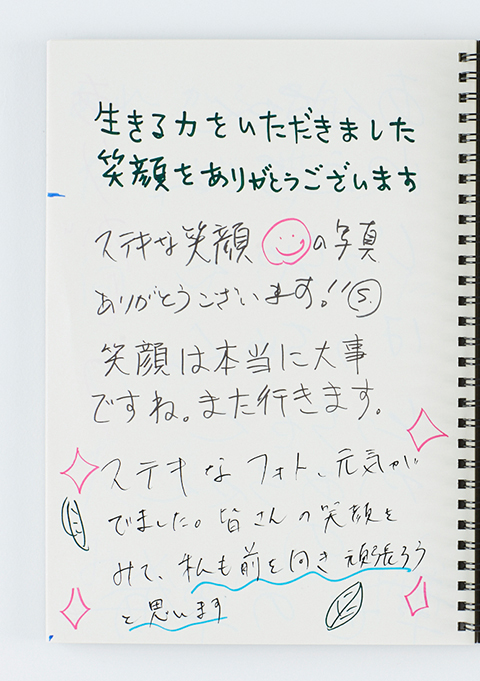 生きる力をいただきました
笑顔をありがとうございます
ステキな笑顔の写真
ありがとうございます!! S.
笑顔は本当に大事
ですね。また行きます。
ステキなフォト、元気が
でました。皆さんの笑顔を
みて、私も前を向き頑張ろう
と思います